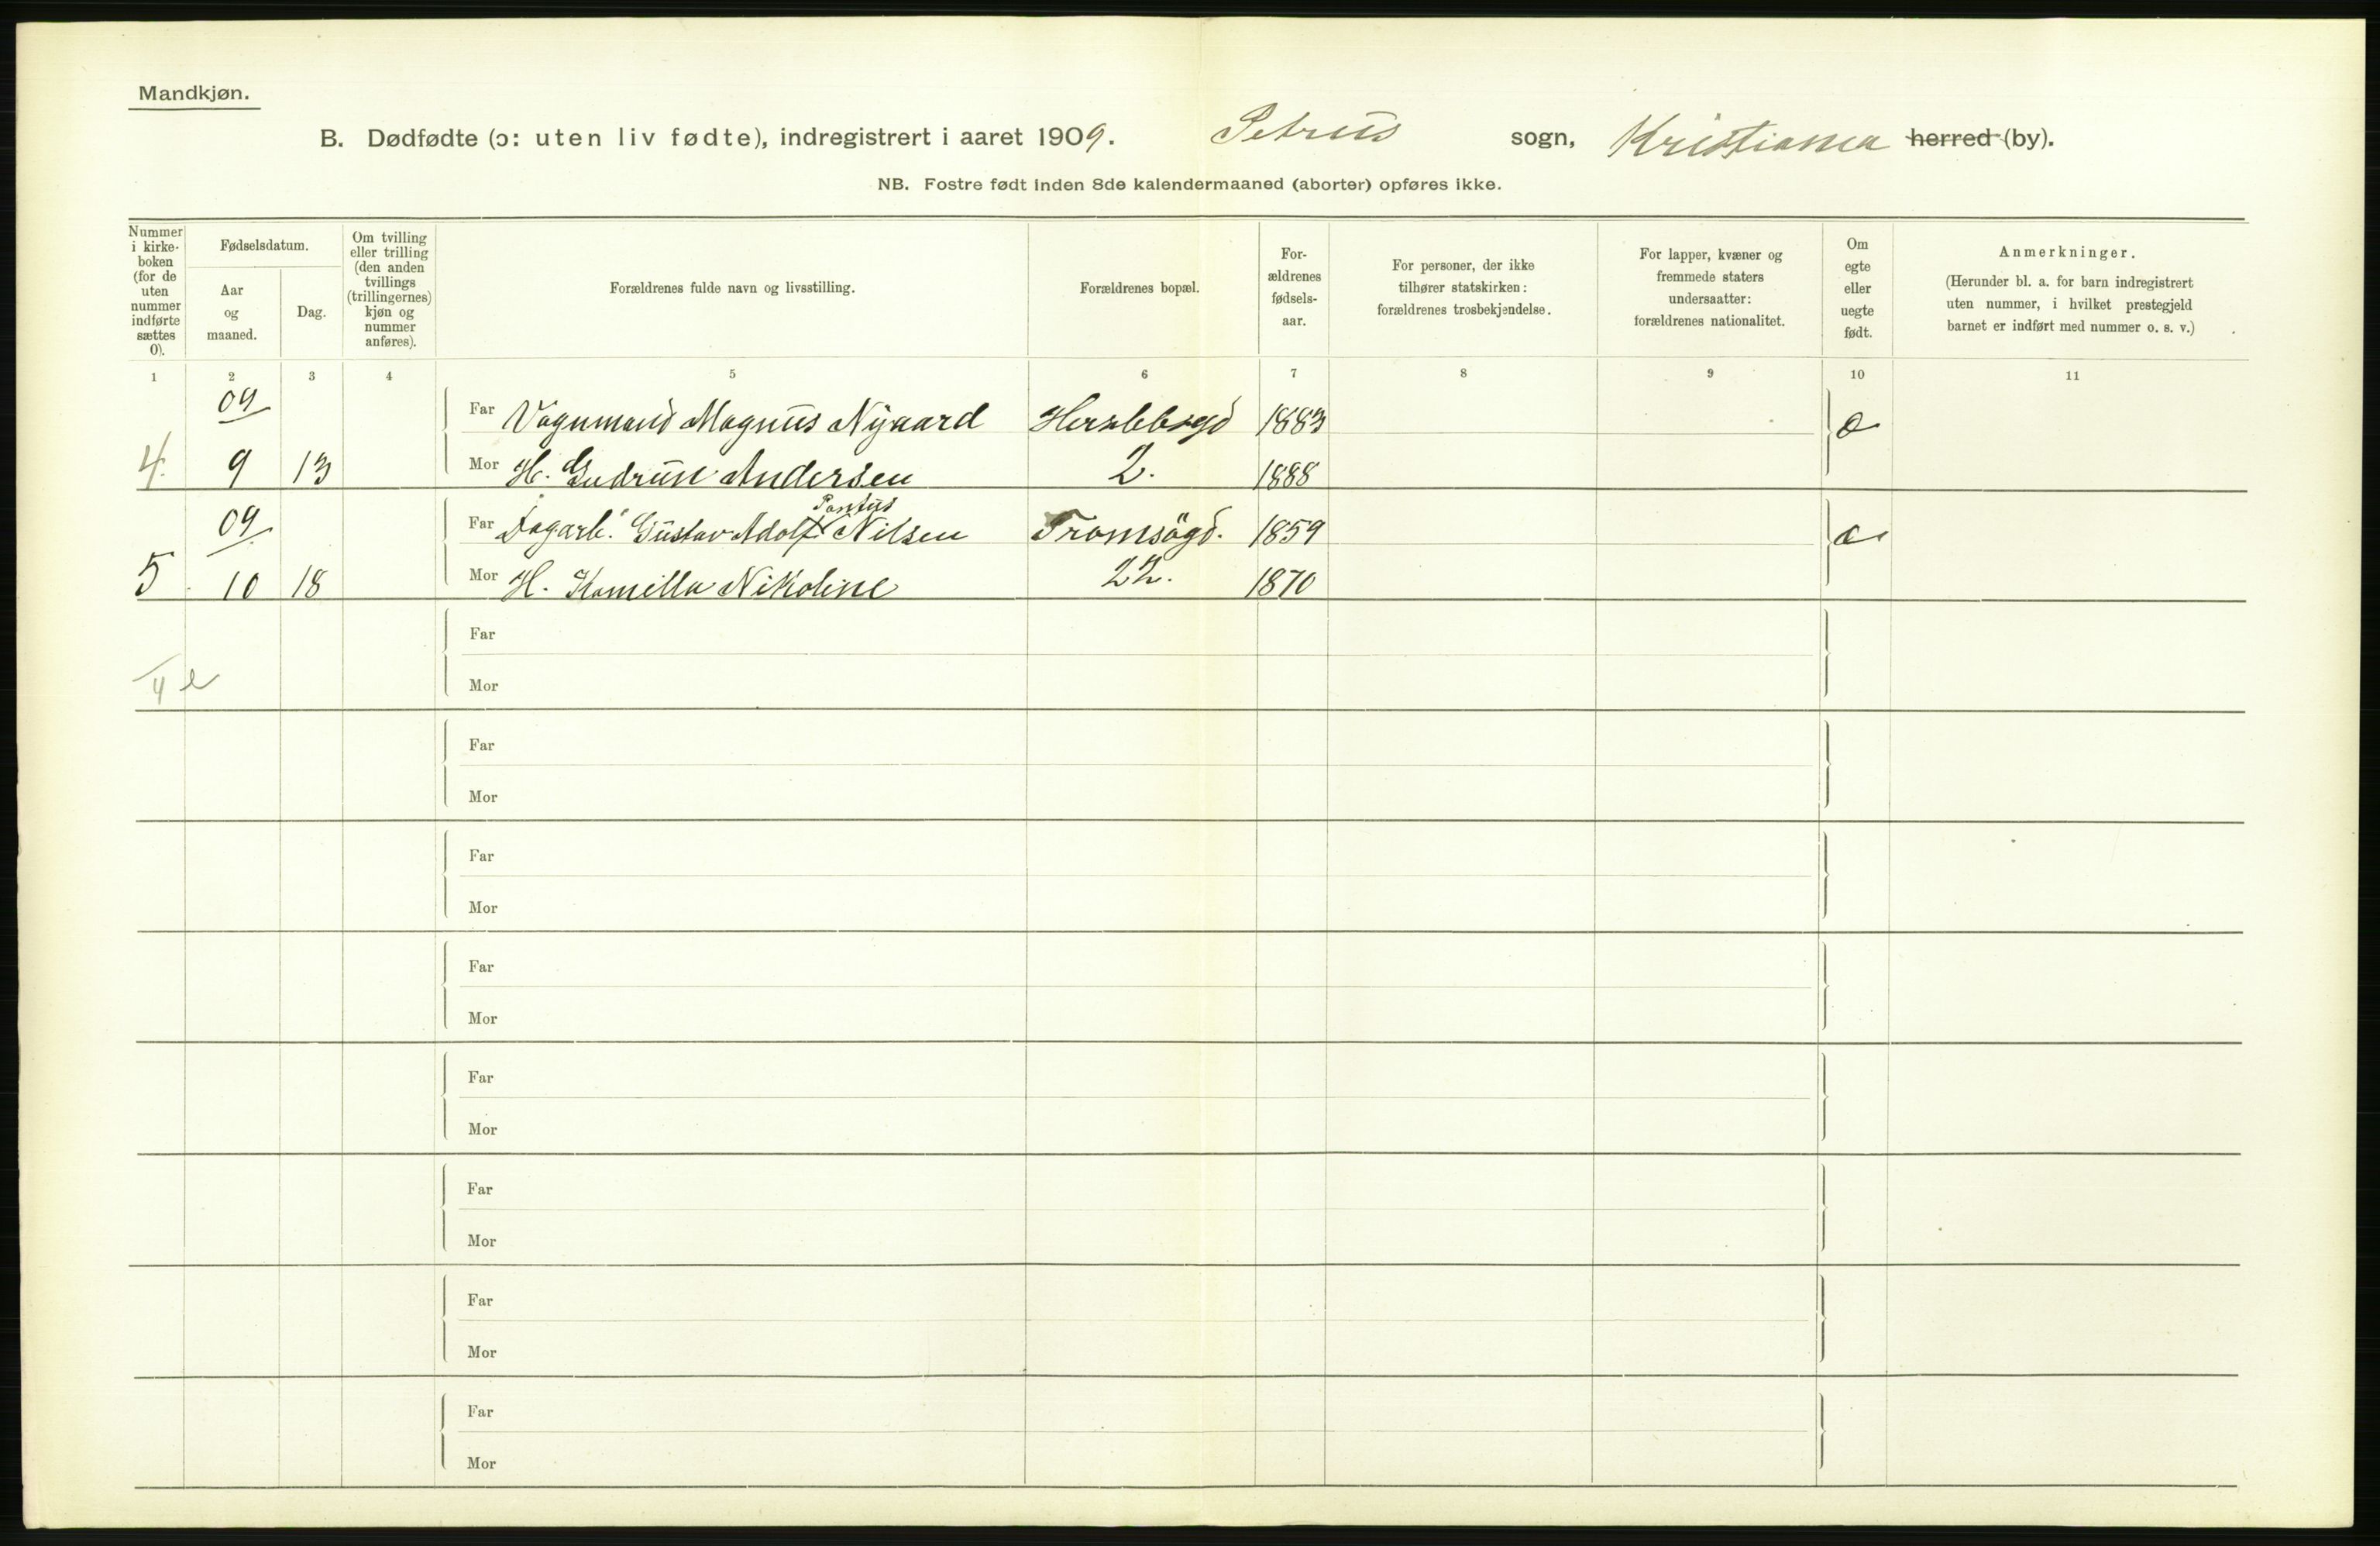 Mandkjøn.
B. Dødfødte (ɔ: uten liv fødte), indregistrert i aaret 1909. Petrus sogn, Kristiania herred (by).
NB. Fostre født inden 8de kalendermaaned (aborter) opføres ikke.
Nummer
i kirke-
boken
(for de
uten
nummer
indførte
sættes
0).
Fødselsdatum.
Aar
og
maaned.
Dag.
Om tvilling
eller trilling
(den anden
tvillings
(trillingernes)
kjøn og
nummer
anføres).
Forældrenes fulde navn og livsstilling.
Forældrenes bopæl.
For-
ældrenes
fødsels-
aar.
For personer, der ikke
tilhører statskirken:
forældrenes trosbekjendelse.
For lapper, kvæner og
fremmede staters
undersaatter:
forældrenes nationalitet.
Om
egte
eller
uegte
født.
Anmerkninger.
(Herunder bl. a. for barn indregistrert
uten nummer, i hvilket prestegjeld
barnet er indført med nummer o. s. v.)
1 2 3 4 5 6 7 8 9 10 11
09 Far Vognmand Magnus Nyaard Herslebsgd 1883
4. 9 13 Mor H. Gudrun Andersen 2. 1888
Pontus
09 Far Dagarb. Gustav Adolf Nilsen Tromsögd. 1859
5 10 18 Mor H. Kamilla Nikoline 22. 1870
Far
Mor
Far
Mor
Far
Mor
Far
Mor
Far
Mor
Far
Mor
Far
Mor
Far
Mor